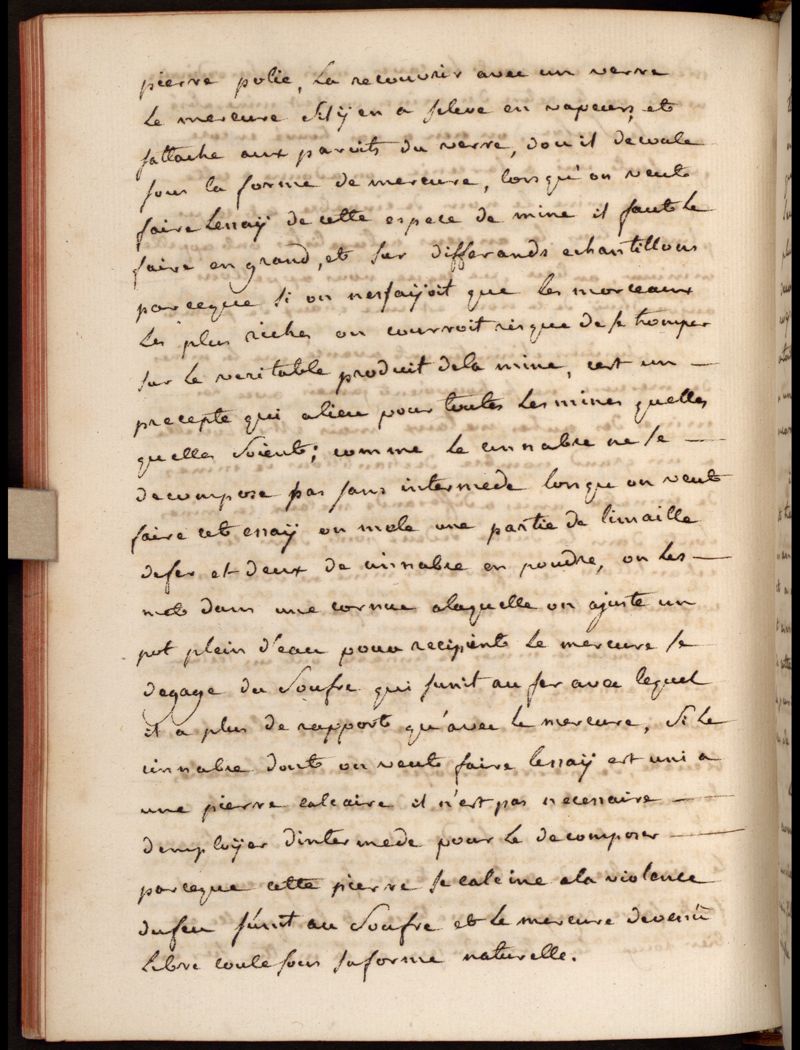 pierre polie, La recouvrir avec un verre
Le mercure sil ÿ en a seleve en vapeurs, et
sattache aux paroits du verre, dou il decoule
sous la forme de mercure, lorsqu'on veut
faire Lessaÿ de cette espece de mine il faut Le
faire en grand, et sur differands echantillons
parceque si on nessaÿoit que les morceaux
Les plus riches on courroit risque de se tromper
sur le veritable produit dela mine, cest un —
precepte qui alieu pour toutes Lesmines quelles
quelles soient; comme Le cinnabre ne se —
decompose pas sans intermede lorsque on veut
faire cet essaÿ on mele une partie de limaille
defer et deux de cinnabre en poudre, on les —
met dans une cornue alaquelle on ajuste un
pot plein d'eau pour recipient Le mercure se
degage du soufre qui sunit au fer avec lequel
il a plus de rapport qu'avec le mercure, Si le
cinnabre dont on veut faire lessaÿ est uni a
une pierre calcaire il n'est pas necessaire —
demploÿer dintermede pour Le decomposer —
parceque cette pierre se calcine ala violence
dufeu s'unit au soufre et Le mercure devenü
Libre coule sous saforme naturelle.